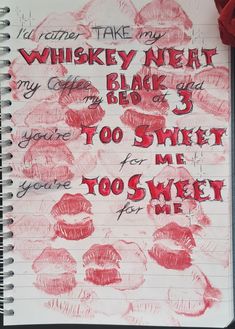 I'd rather TAKE my
WHISKEY NEAT
my Coffee BLACK and
my BED at 3
you're TOO SWEET
for ME
you're TOO SWEET
for ME